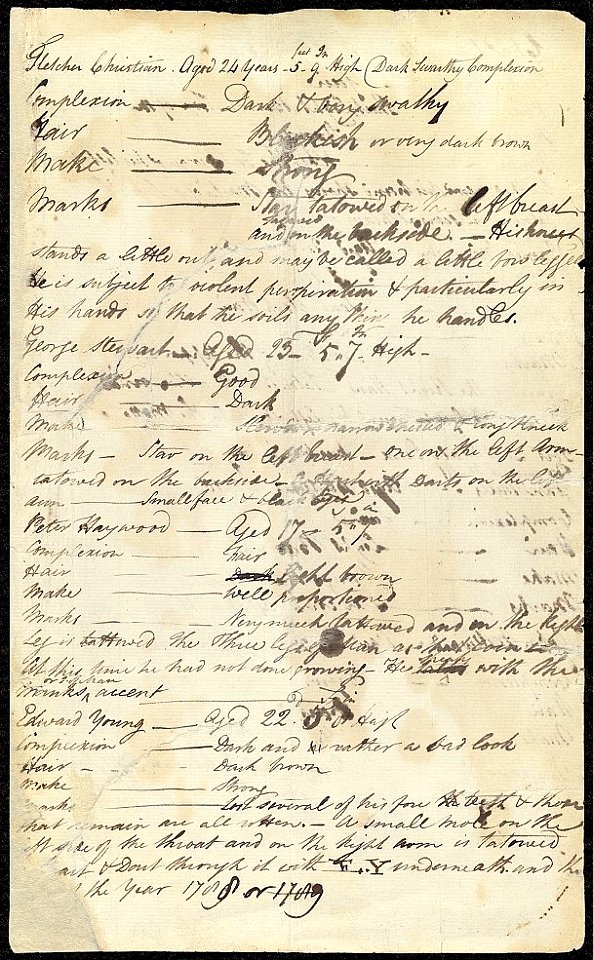 Fletcher Christian. Aged 24 Years 5 feet 9 In High (Dark Swarthy Complexion
Complexion Dark & very swathy
Hair Blackish or very dark brown
Make Strong
Marks Star tatowed on the left breast
and tatowed on the backside — His knees
stands a little out and may be called a little bow legged
He is subject to violent perspiration & particularly in
His hands so that he soils any thing he handles.
George Stewart — Aged 23 — 5 7 In High —
Complexion Good
Hair Dark
Make Slender narrow chested & long Neck
Marks — Star on the left breast — one on the left Arm —
tatowed on the backside — with Darts on the left
arm — Small face & black eyes
Peter Haywood — Aged 17 — 5 7
Complexion fair
Hair Dark light brown
Make Well proportioned
Marks Very much tattowed and on the Right
Leg is tattowed the Three legs of Man as that coin is
At this time he had not done growing — He with the
Manks accent
Edward Young — Aged 22 5 8 High
Complexion Dark and rather a bad look
Hair — Dark brown
Make Strong
Marks Lost several of his fore teeth & those
that remain are all rotten. — A small mole on the
left side of the throat and on the right arm is tatowed
& Dart through it with E.Y underneath and the
the Year 1788 or 1789